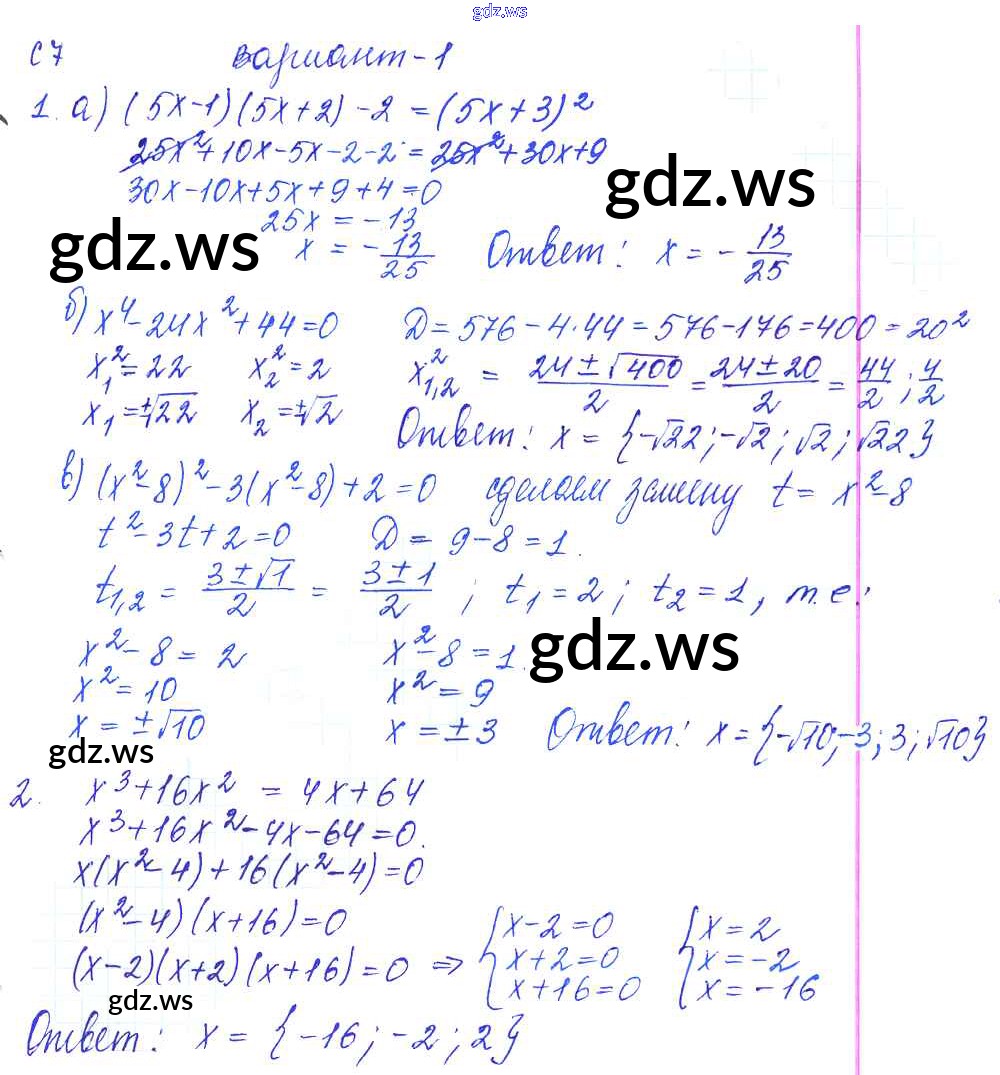 gdz.ws
С7 Вариант-1
1. а) (5x-1)(5x+2)-2=(5x+3)²
25x²+10x-5x-2-2=25x²+30x+9
30x-10x+5x+9+4=0
gdz.ws
25x=-13
gdz.ws
x=-13/25 Ответ: x=-13/25
б) x⁴-24x²+44=0 D=576-4·44=576-176=400=20²
x₁²=22 x₂²=2 x²₁,₂ = (24±√400)/2 = (24±20)/2 = 44/2; 4/2
x₁=±√22 x₂=±√2
Ответ: x={-√22;-√2;√2;√22}
в) (x²-8)²-3(x²-8)+2=0 сделаем замену t=x²-8
t²-3t+2=0 D=9-8=1.
t₁,₂ = (3±√1)/2 = (3±1)/2; t₁=2; t₂=1, т.е.:
x²-8=2 x²-8=1.
gdz.ws
x²=10 x²=9
x=±√10 x=±3 Ответ: x={-√10;-3;3;√10}
gdz.ws
2. x³+16x²=4x+64
x³+16x²-4x-64=0.
x(x²-4)+16(x²-4)=0
(x²-4)(x+16)=0
(x-2)(x+2)(x+16)=0 ⇒ { x-2=0 { x=2
x+2=0 x=-2
x+16=0 x=-16
gdz.ws
Ответ: x={-16;-2;2}
gdz.ws